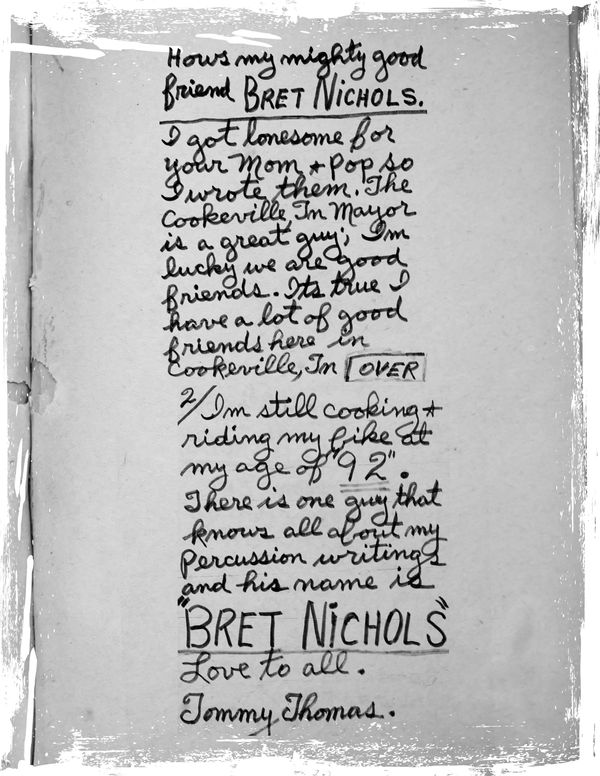 Hows my mighty good
friend BRET NICHOLS.
I got lonesome for
your Mom + Pop so
I wrote them. The
Cookeville, Tn Mayor
is a great guy; I'm
lucky we are good
friends. Its true I
have a lot of good
friends here in
Cookeville, Tn OVER
2/ I'm still cooking +
riding my bike at
my age of "92".
There is one guy that
knows all about my
percussion writings
and his name is
"BRET NICHOLS"
Love to all.
Tommy Thomas.